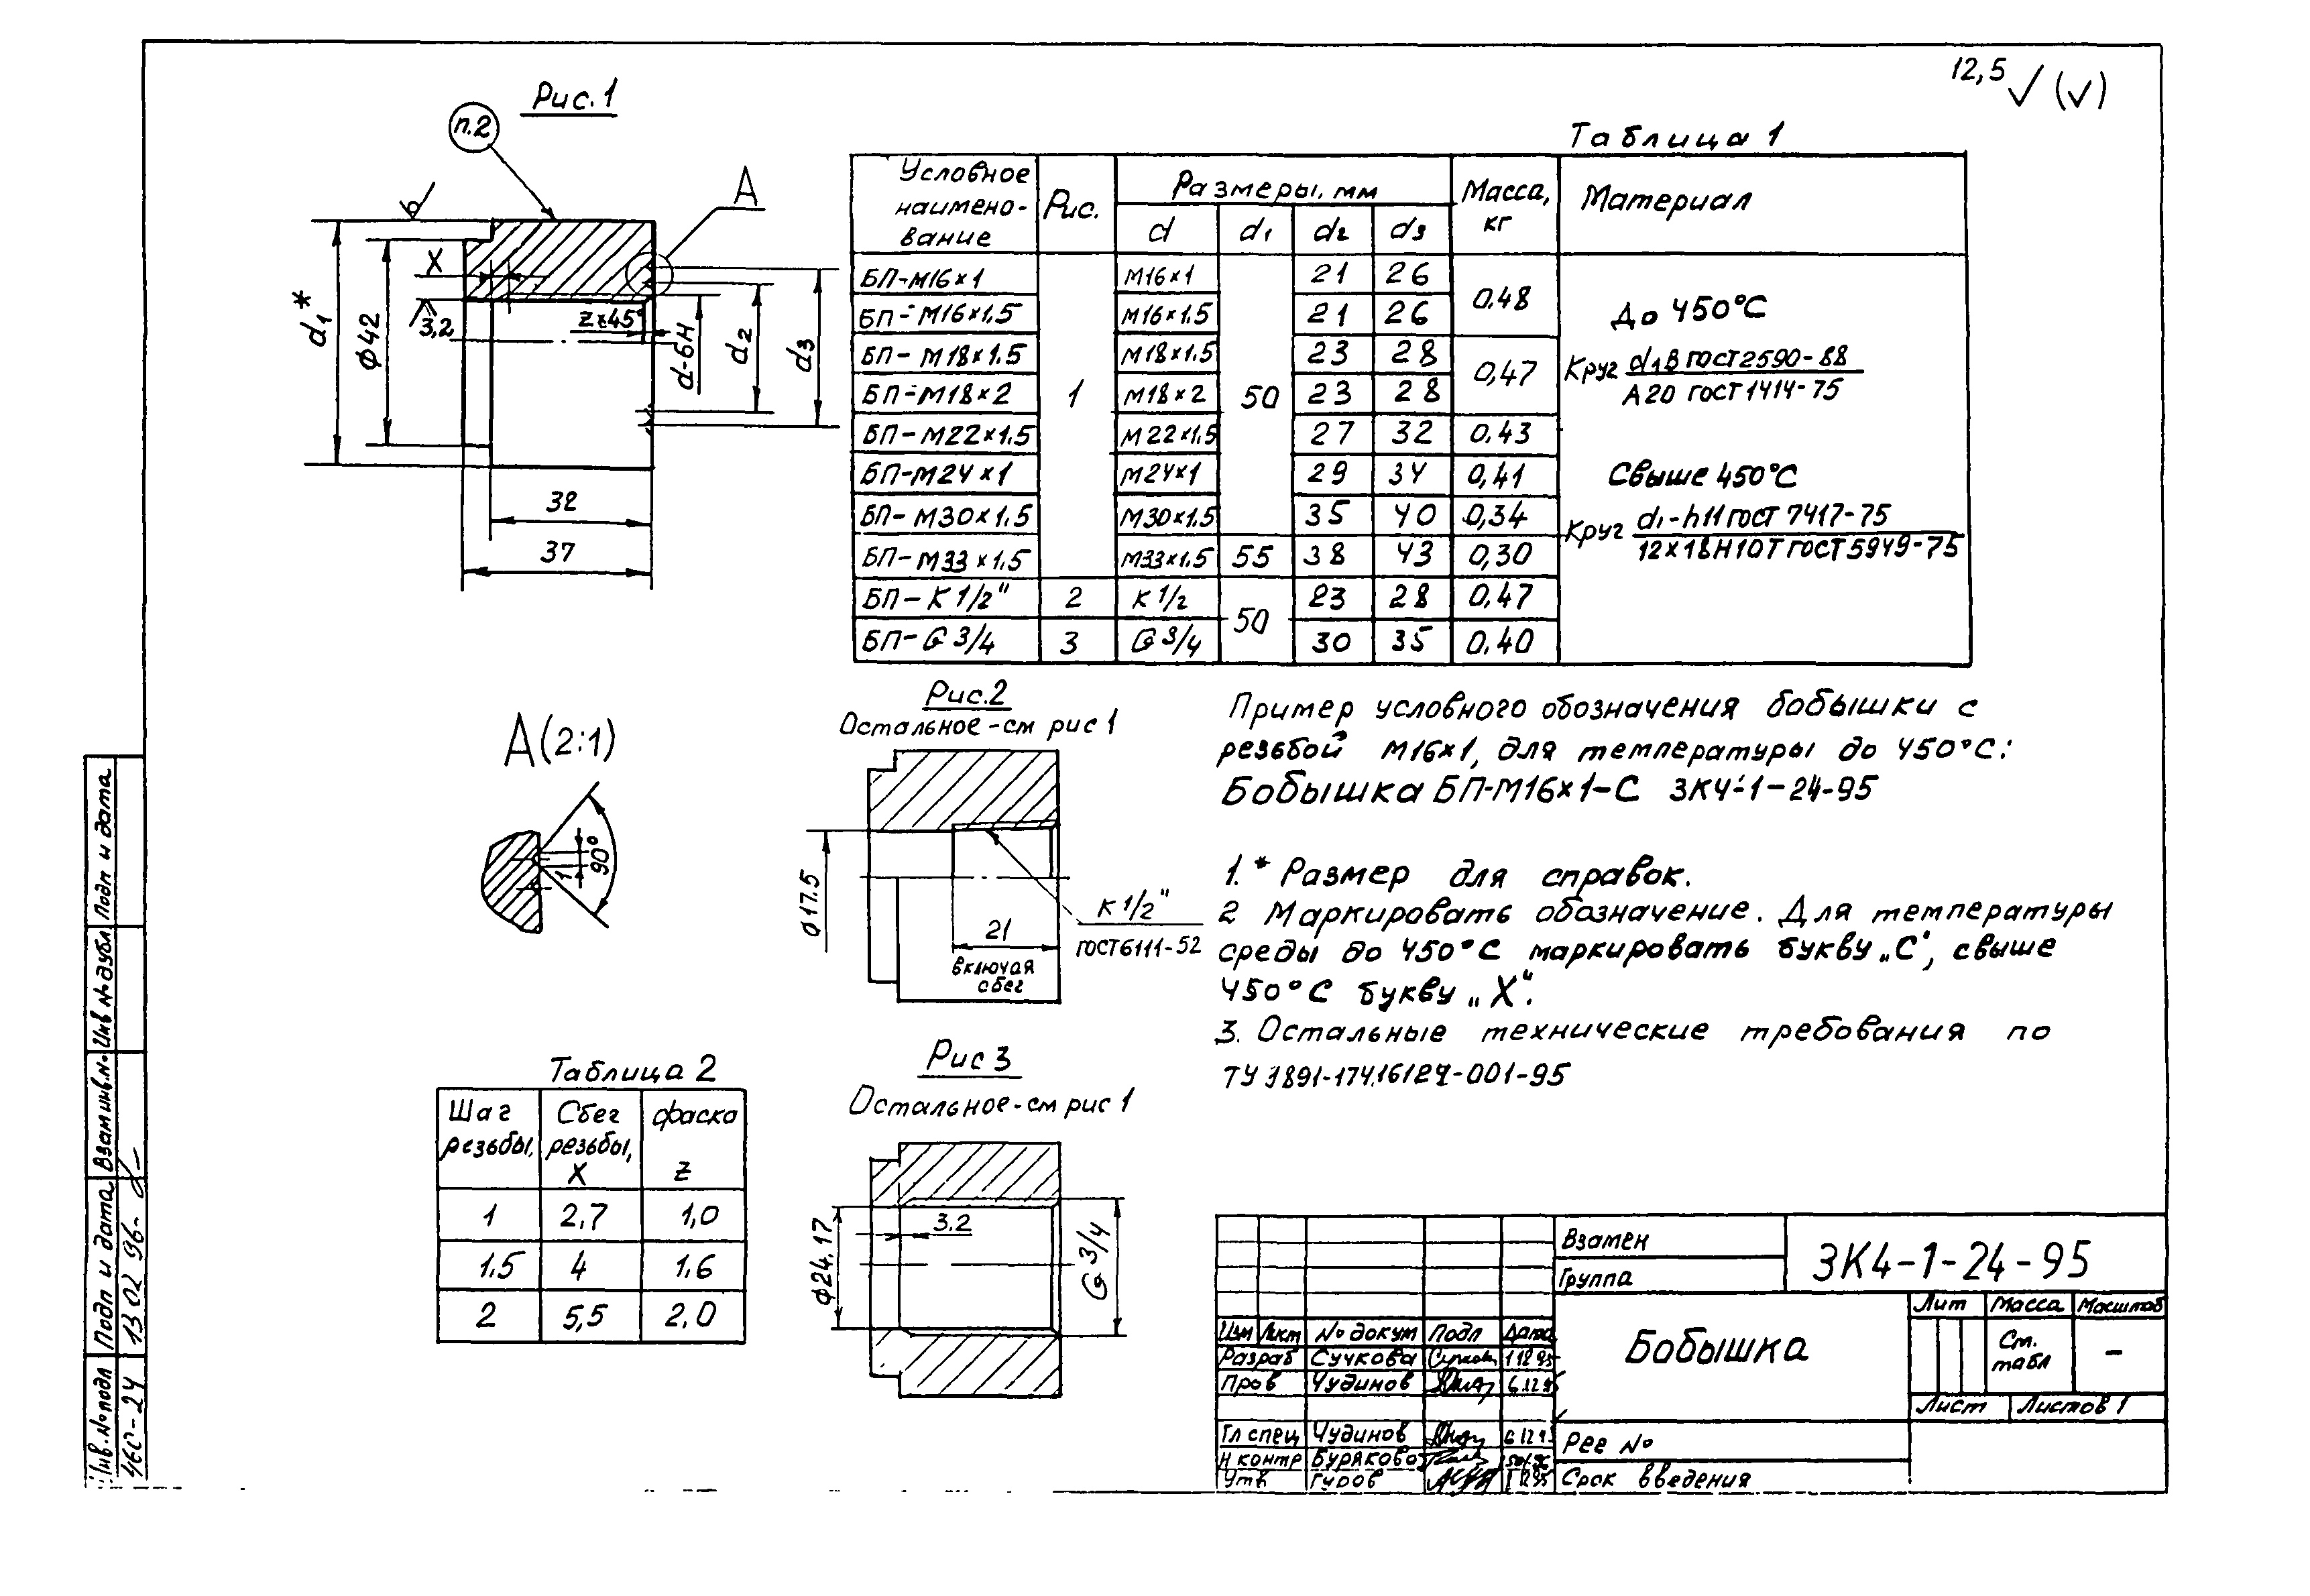 12,5 (√)
Рис.1
п.2
А
X
3,2
z×45°
d₁*
Ф42
d-6H
d₂
d₃
32
37
Таблица 1
Условное наимено-вание | Рис. | Размеры, мм | Масса, кг | Материал
d | d₁ | d₂ | d₃
БП-М16×1 | 1 | М16×1 | 50 | 21 | 26 | 0,48
БП-М16×1,5 | М16×1.5 | 21 | 26
БП-М18×1.5 | М18×1.5 | 23 | 28 | 0,47
БП-М18×2 | М18×2 | 23 | 28
БП-М22×1.5 | М22×1.5 | 27 | 32 | 0.43
БП-М24×1 | М24×1 | 29 | 34 | 0,41
БП-М30×1.5 | М30×1.5 | 35 | 40 | 0,34
БП-М33×1.5 | М33×1.5 | 55 | 38 | 43 | 0,30
БП-К 1/2" | 2 | К 1/2 | 50 | 23 | 28 | 0.47
БП-G 3/4 | 3 | G 3/4 | 30 | 35 | 0.40
До 450°С
Круг d₁В ГОСТ2590-88
А20 ГОСТ1414-75
Свыше 450°С
Круг d₁-h11 ГОСТ 7417-75
12Х18Н10Т ГОСТ5949-75
А(2:1)
1
90°
Рис.2
Остальное-см рис 1
Ф17.5
21
включая
сбег
К 1/2"
ГОСТ6111-52
Пример условного обозначения бобышки с
резьбой М16×1, для температуры до 450°С:
Бобышка БП-М16×1-С ЗК4-1-24-95
1.* Размер для справок.
2 Маркировать обозначение. Для температуры
среды до 450°С маркировать букву „С", свыше
450°С букву „Х".
3. Остальные технические требования по
Таблица 2
Шаг резьбы, | Сбег резьбы, X | фаска z
1 | 2,7 | 1,0
1.5 | 4 | 1,6
2 | 5,5 | 2,0
Рис 3
Остальное-см рис 1
Ф24.17
3.2
G 3/4
Взамен
Группа
ЗК4-1-24-95
Бобышка
Лит | Масса | Масштаб
Ст. табл | -
Лист | Листов 1
Рег №
Срок введения
Изм | Лист | № докум | Подп | Дата
Разраб | Сучкова
Пров | Чудинов
Гл спец | Чудинов
Н контр | Бурякова
Утв | Гуров
Подп и дата
Инв № дубл
Взам инв.№
Подп и дата
13 02 96
Инв.№ подл